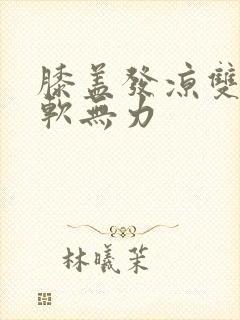 膝盖發凉雙
軟無力
林曦茉